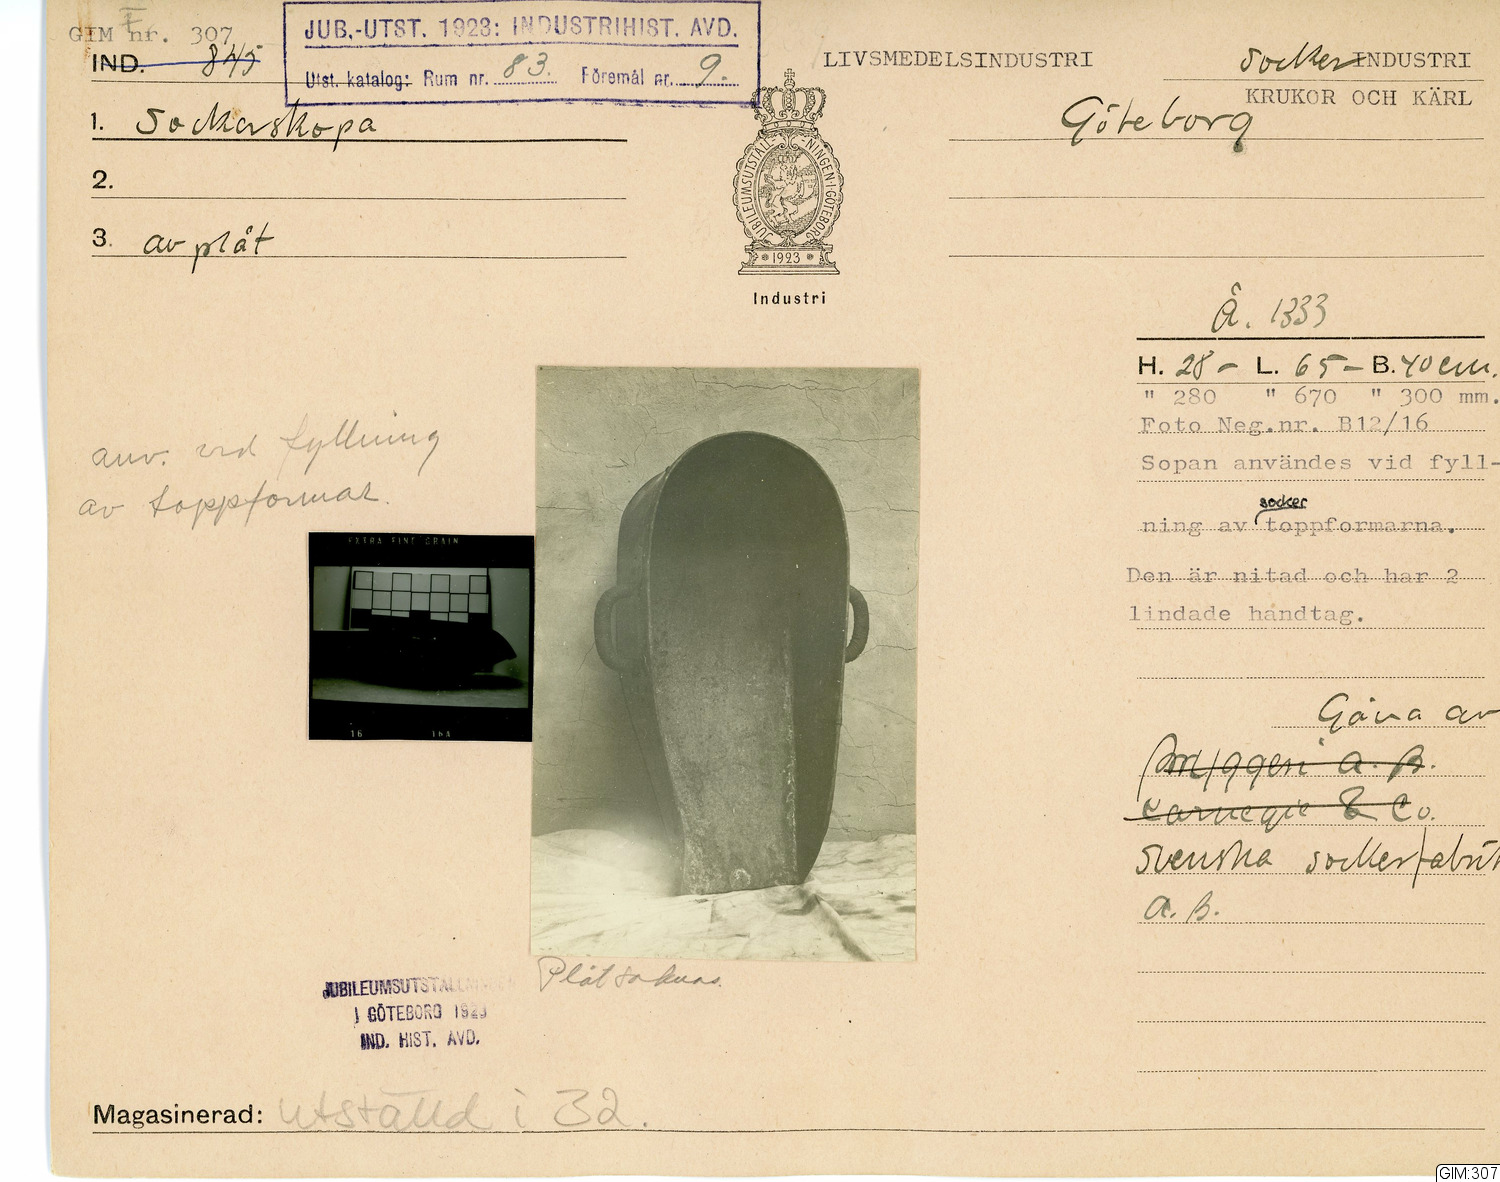 GIM F nr. 307
IND. 845
JUB.-UTST. 1923: INDUSTRIHIST. AVD.
Utst. katalog: Rum nr. 83. Föremål nr. 9.
LIVSMEDELSINDUSTRI
sockerINDUSTRI
KRUKOR OCH KÄRL
1. Sockerskopa
Göteborg
2.
3. av plåt
JUBILEUMSUTSTÄLLNINGEN I GÖTEBORG
1923
Industri
Å. 1333
H. 28 - L. 65 - B. 40 cm.
" 280 " 670 " 300 mm.
Foto Neg.nr. B12/16
Sopan användes vid fyll-
ning av socker toppformarna.
Den är nitad och har 2
lindade handtag.
anv. vid fyllning
av toppformar.
EXTRA FINE GRAIN
16 16A
Gåva av
Bryggeri A. B.
Carnegie & Co.
Svenska sockerfabrik
A. B.
Plåt saknas.
JUBILEUMSUTSTÄLLNINGEN
I GÖTEBORG 1923
IND. HIST. AVD.
Magasinerad: utställd i 32.
GIM:307